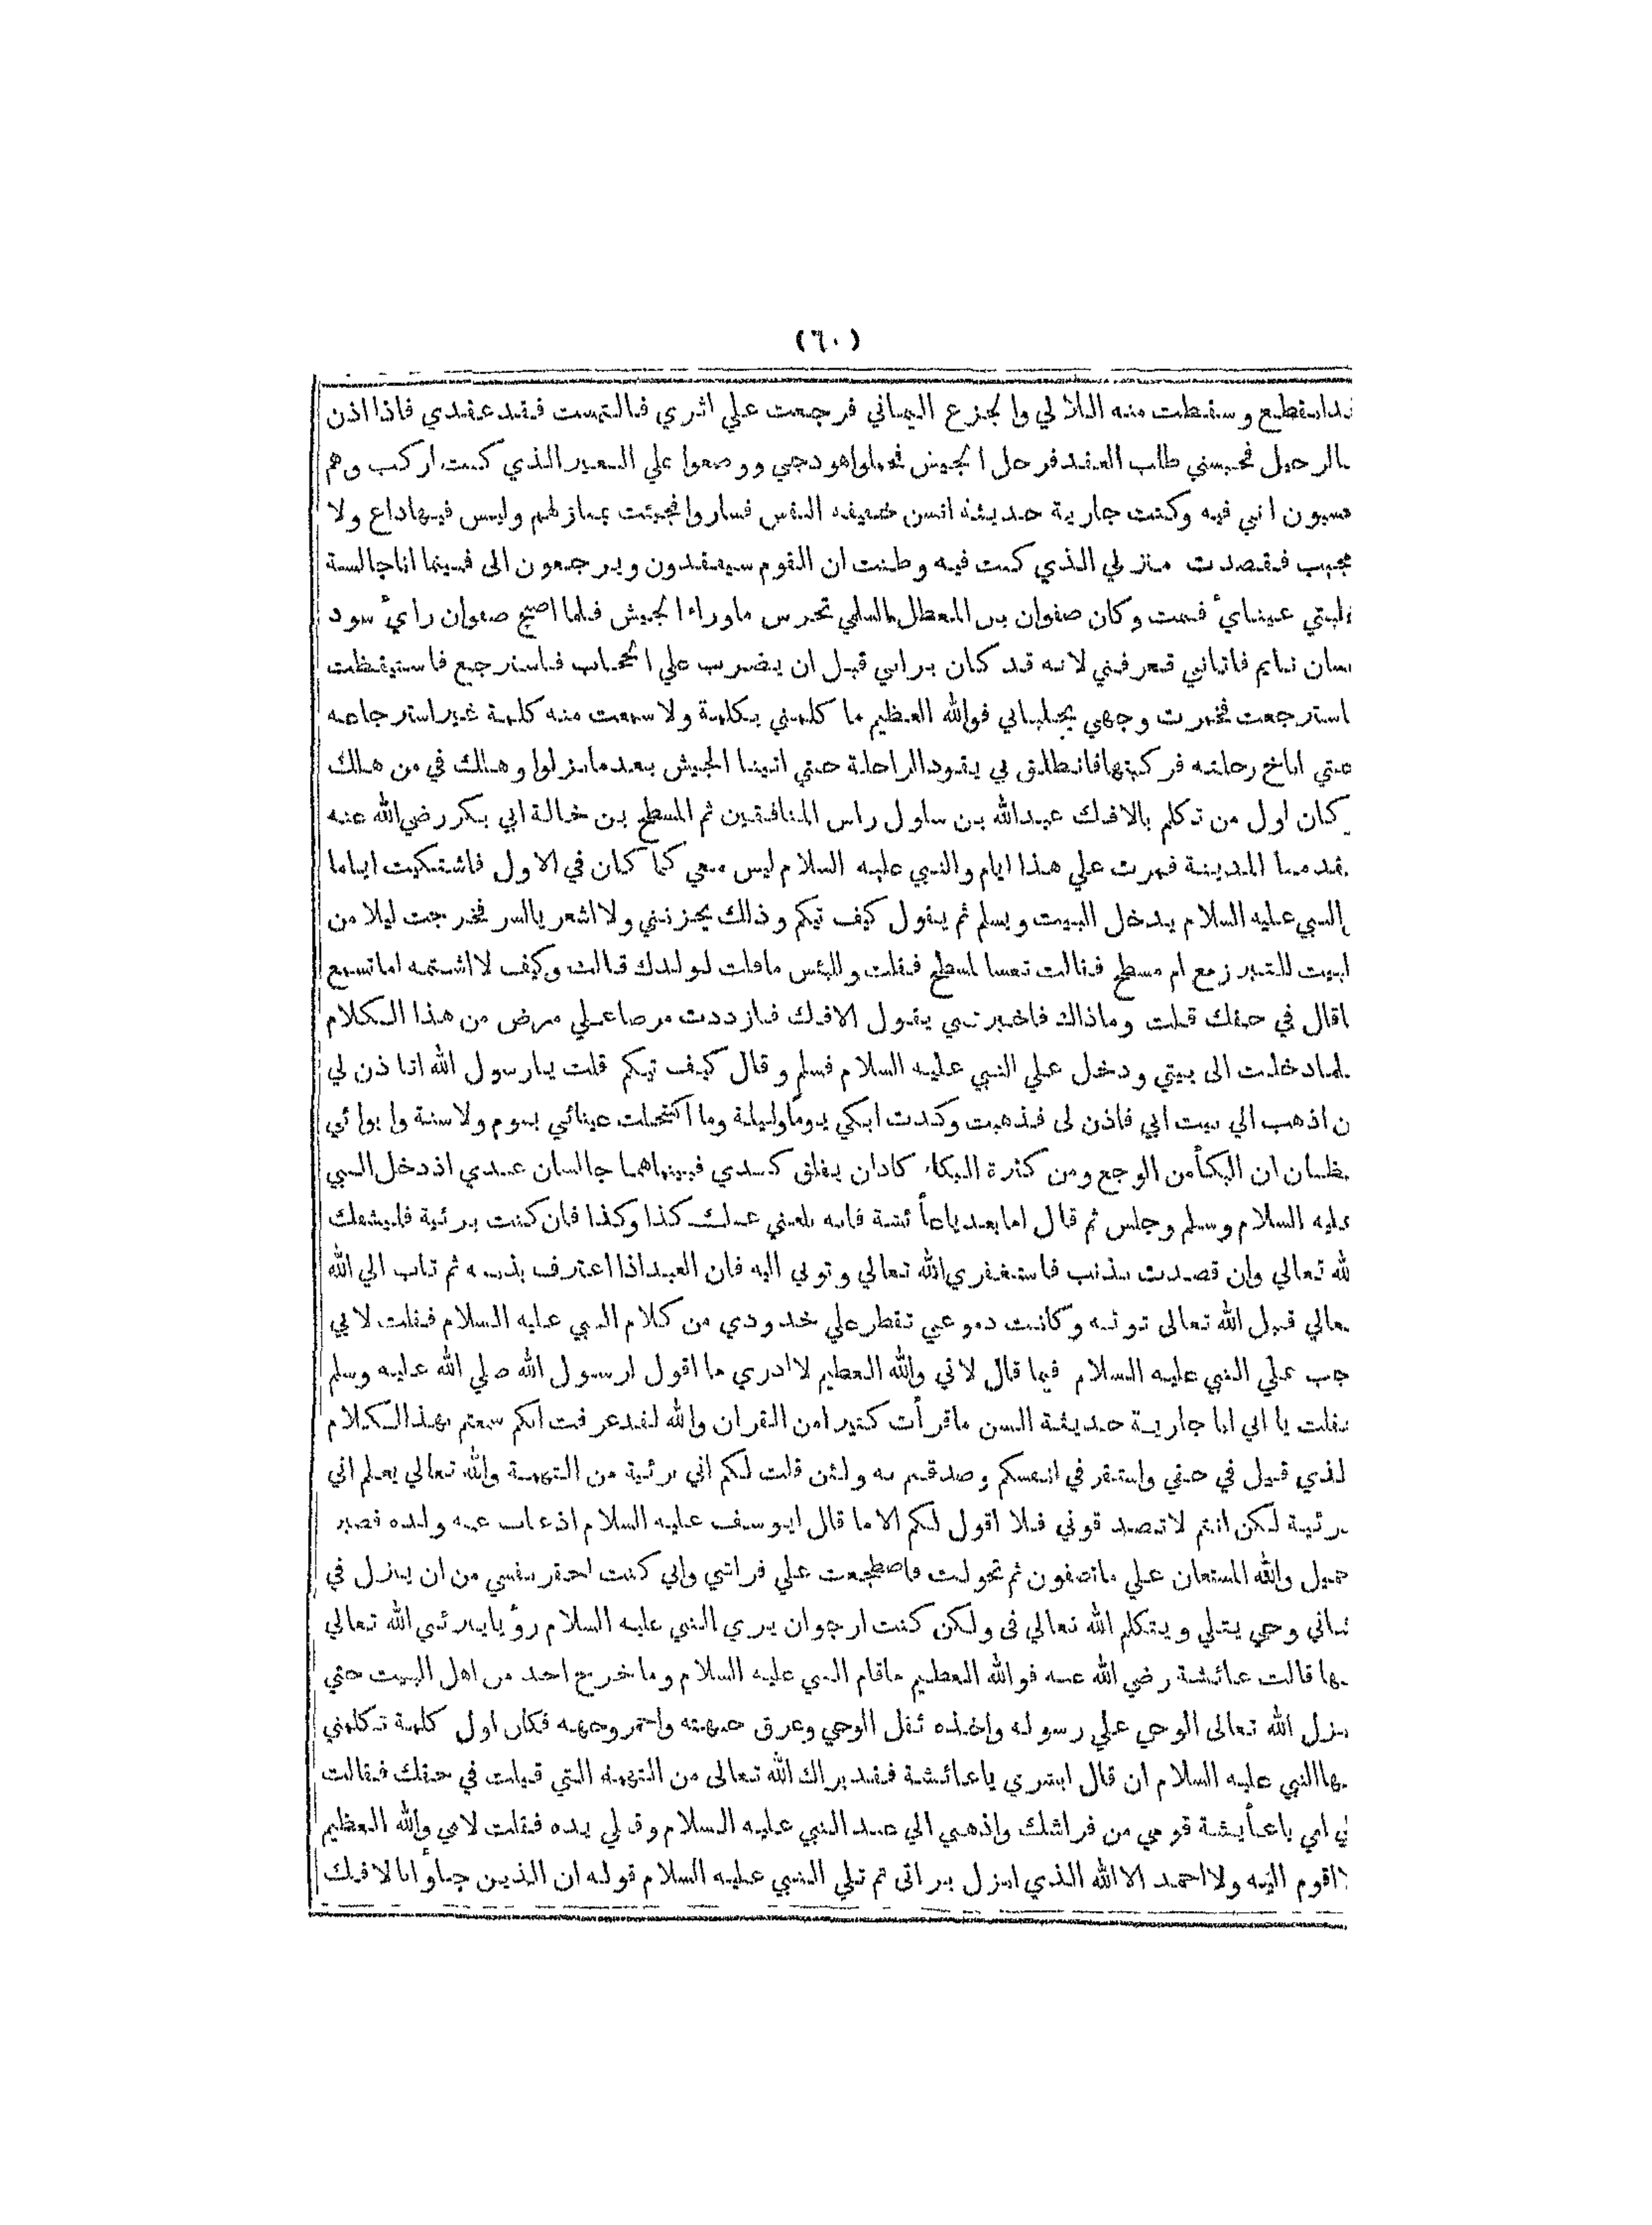 (٦٠)
انقطع وسقطت منه اللالي والجزع اليماني فرجعت علي اثري فالتمست فقد عقدي فاذا اذن
بالرحيل فحبسني طلب العقد فرحل الجيش فحملوا هودجي ووضعوا علي البعير الذي كنت اركب وهم
انني فيه وكنت جارية حديثة السن ضعيفه النفس فساروا فجئت بمنازلهم وليس فيها داع ولا
مجيب فقصدت منزلي الذي كنت فيه وظننت ان القوم سيفقدون ويرجعون الى فبينما انا جالسة
عيناي فنمت وكان صفوان بن المعطل السلمي تحرس ماوراء الجيش فلما اصبح صفوان راي سود
نايم فاتاني فعرفني لانه قد كان يراني قبل ان يضرب علي الحجاب فاسترجع فاستيقظت
استرجعت فخمرت وجهي بجلبابي فوالله العظيم ما كلمني بكلمة ولا سمعت منه كلمة غير استرجاعه
حتي اناخ رحلته فركبتها فانطلق بي يقود الراحلة حتي اتينا الجيش بعد مانزلوا وهلك في من هلك
كان اول من تكلم بالافك عبدالله بن سلول راس المنافقين ثم المسطح بن خالة ابي بكر رضي الله عنه
قدمنا المدينة فمرت علي هذا ايام والنبي عليه السلام ليس معي كما كان في الاول فاشتكيت اياما
النبي عليه السلام يدخل البيت ويسلم ثم يقول كيف تيكم وذلك يحزنني ولا اشعر بالسر فخرجت ليلا من
البيت للتبرز مع ام مسطح فقالت تعسا لمسطح فقلت وللبئس ماقلت لولدك قالت وكيف لا اشتمه اما تسمع
قال في حقك قلت وماذاك فاخبرتني يقول الافك فازددت مرضا علي مرض من هذا الكلام
دخلت الى بيتي ودخل علي النبي عليه السلام فسلم وقال كيف تيكم قلت يا رسول الله اتاذن لي
ن اذهب الي بيت ابي فاذن لى فذهبت وكدت ابكي يوما وليلة وما اكتحلت عينائي بنوم ولا سنة وابوائي
يظنان ان البكأ من الوجع ومن كثرة البكاء كادان يفلق كبدي فبينماهما جالسان عندي اذ دخل النبي
عليه السلام وسلم وجلس ثم قال اما بعد ياعأئشة فانه بلغني عنك كذا وكذا فان كنت برئية
لله تعالي وان قصدت بذنب فاستغفري الله تعالي وتوبي اليه فان العبد اذا اعترف بذنبه ثم تاب الي الله
تعالي قبل الله تعالى توبته وكانت دموعي تقطر علي خدودي من كلام النبي عليه السلام فقلت لابي
جب علي النبي عليه السلام فيما قال لاني والله العظيم لا ادري ما اقول لرسول الله صلي الله عليه وسلم
فقلت يا ابي انا جارية حديثة السن ماقرأت كثيرا من القران والله لقد عرفت انكم سمعتم بهذا الكلام
لذي قيل في حقي واستقر في انفسكم وصدقتم به ولئن قلت لكم اني برئية من التهمة والله تعالي يعلم اني
برئية لكن انتم لاتصد قوني فلا اقول لكم الا ما قال ابو يوسف عليه السلام اذ غاب عنه ولده فصبر
جميل والله المستعان علي ماتصفون ثم تحولت فاضطجعت علي فراشي واني كنت احقر بنفسي من ان ينزل في
شاني وحي يتلي ويتكلم الله تعالي فى ولكن كنت ارجوان يري النبي عليه السلام رؤيا يبرئني الله تعالي
بها قالت عائشة رضي الله عنه فوالله العظيم ماقام النبي عليه السلام وما خرج احد من اهل البيت حتي
نزل الله تعالى الوحي علي رسوله واخذه ثقل الوحي وعرق جبهته واحمر وجهه فكان اول كلمة تكلمني
بها النبي عليه السلام ان قال ابشري ياعائشة فقد براك الله تعالى من التهمة التي قيلت في حقك فقالت
لي امي ياعأيشة قومي من فراشك واذهبي الي عند النبي عليه السلام وقبلي يده فقلت لامي والله العظيم
لا اقوم اليه ولا احمد الا الله الذي انزل براتى ثم تلي النبي عليه السلام قوله ان الذين جاؤا بالافك